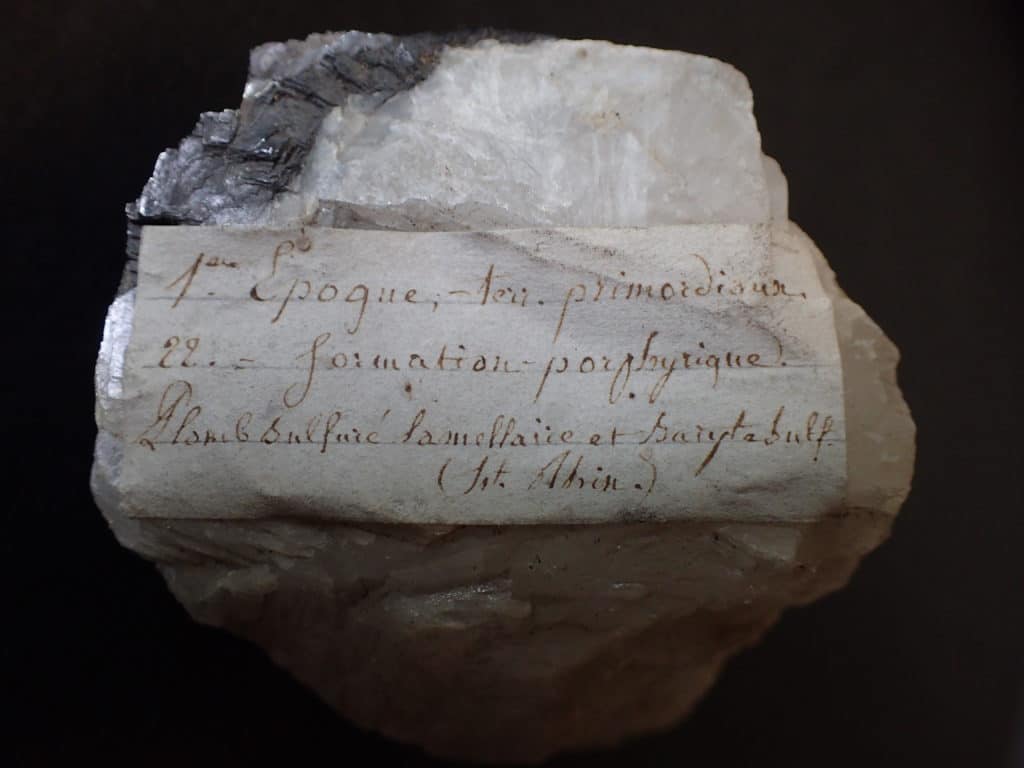 1ere Epoque, - terr. primordiaux.
22. - formation - porphyrique.
Plomb sulfuré lamellaire et Baryte sulf.
(St.